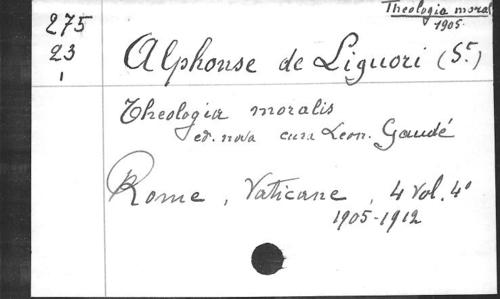 Theologia moral
1905.
275
23
1
Alphonse de Liguori (St.)
Theologia moralis
ed. nova cura Leon. Gaudé
Rome, Vaticane, 4 vol. 4°
1905-1912